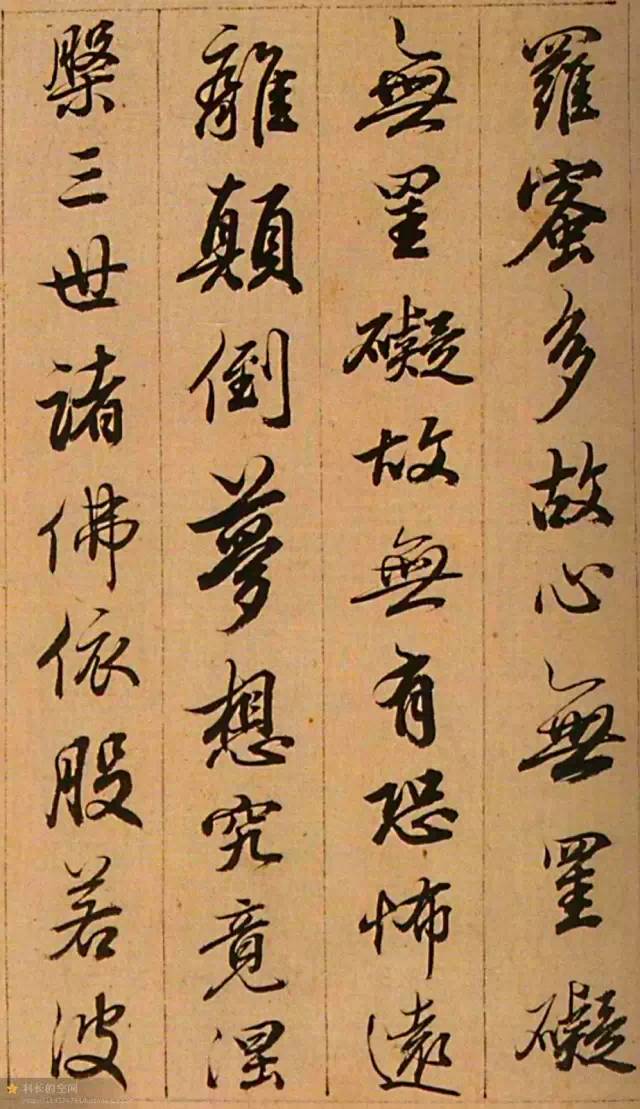 羅蜜多故心無罣礙
無罣礙故無有恐怖遠
離顛倒夢想究竟涅
槃三世諸佛依般若波
科长的空间